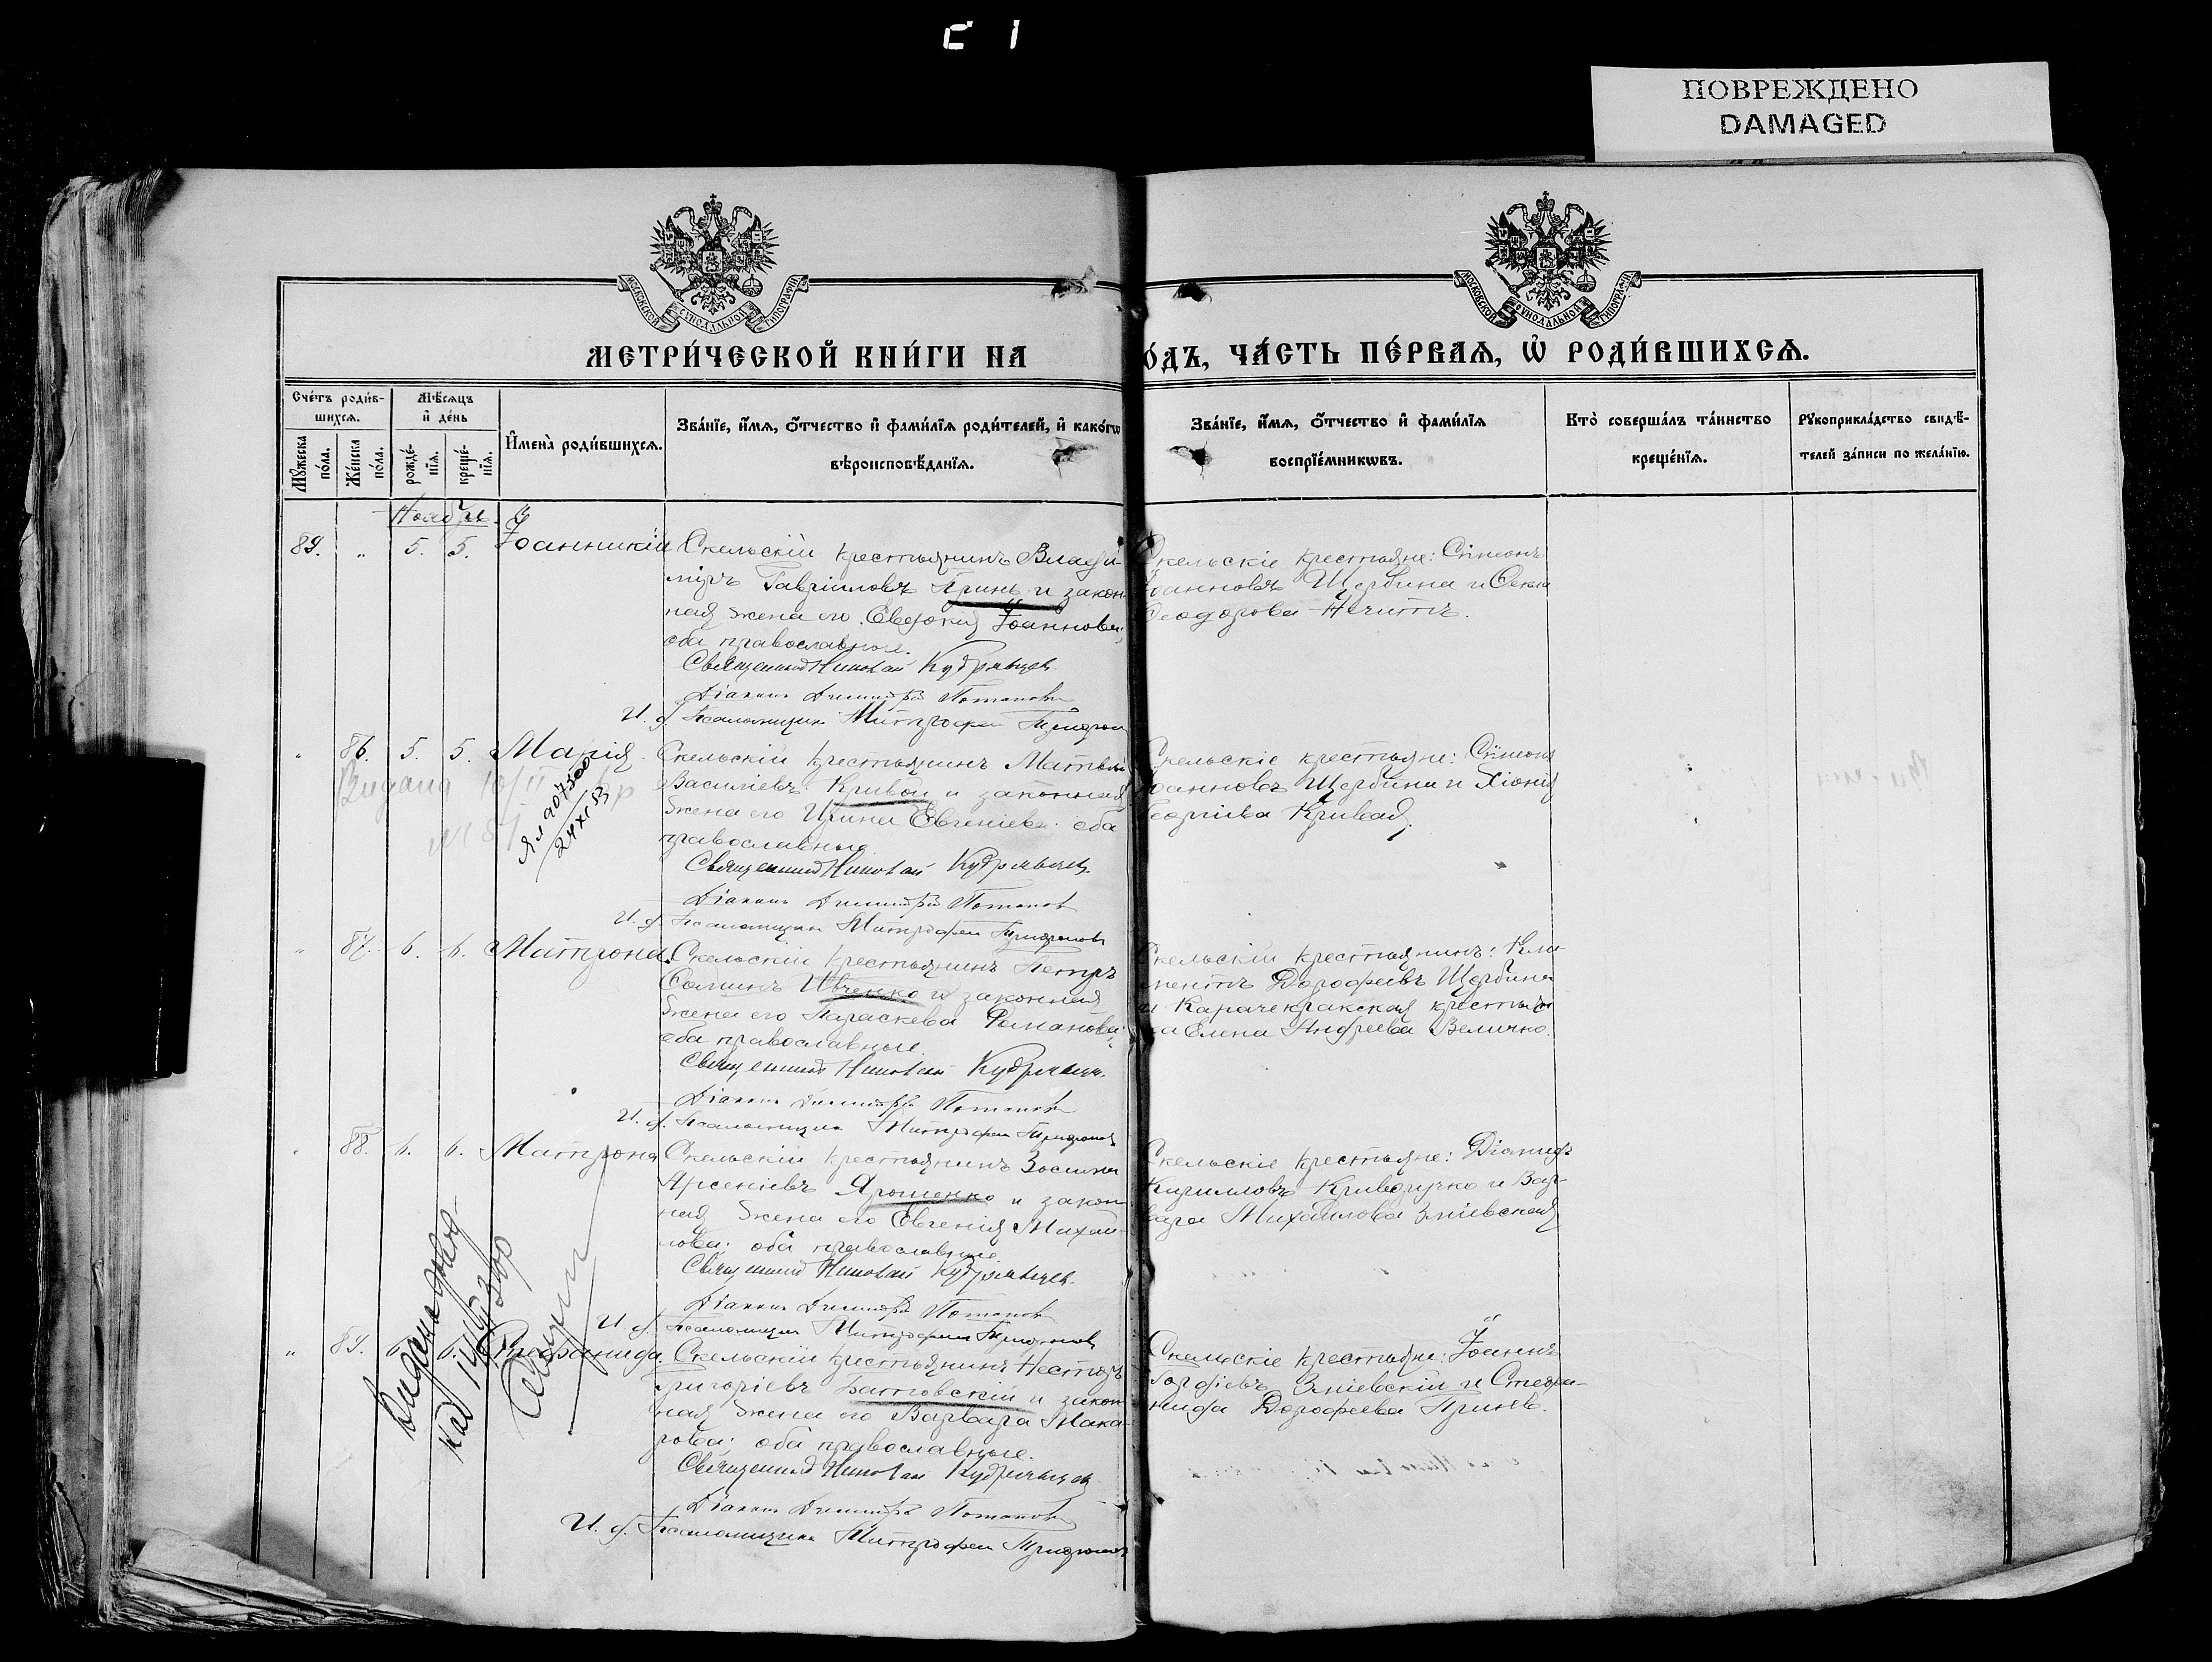 ПОВРЕЖДЕНО
DAMAGED
МОСКОВСКОЙ СѴНОДАЛЬНОЙ ТИПОГРАФІИ
МОСКОВСКОЙ СѴНОДАЛЬНОЙ ТИПОГРАФІИ
МЕТРИ́ЧЕСКОЙ КНИ́ГИ НА
О́ДЪ, ЧА́СТЬ ПЕ́РВАѦ, Ѡ҆ РОДИ́ВШИХСѦ.
Сче́тъ роди́в-
шихсѧ.
Мꙋ́жеска по́ла.
Же́нска по́ла.
Мѣ́сѧцъ
и҆ де́нь
рожде́-
нїѧ.
креще́-
нїѧ.
И҆мена̀ роди́вшихсѧ.
Зва́нїе, и҆́мѧ, ѻ҆́тчество и҆ фамѝлїѧ роди́телей, и҆ како́гѡ
вѣроисповѣ́данїѧ.
Зва́нїе, и҆́мѧ, ѻ҆́тчество и҆ фамѝлїѧ
воспрїе́мникѡвъ.
Кто̀ соверша́лъ та́инство
креще́нїѧ.
Рꙋкоприкла́дство свидѣ́-
телей за́писи по жела́нїю.
Ноябрь.
89. „ 5. 5. Іоанникій
Скельскій крестьянинъ Влади-
міръ Гавріиловъ Принь и закон-
ная жена его Евдокія Іоаннова;
оба православные.
Священникъ Николай Кудрявцев
Діаконъ Димитрій Потаповъ
И. д. Псаломщика Митрофан
Скельскіе крестьяне: Сѵмеонъ
Іоанновъ Щербина и
Ѳеодорова
86. 5. 5. Марія
Видана 10/II
ЯЛ 207500
24 XI 53
Скельскій крестьянинъ Матвѣй
Василіевъ Кривой и законная
жена его Ирина Евгеніева оба
православные
Священникъ Николай Кудрявцев
Діаконъ Димитрій Потапов
И. д. Псаломщика Митрофан
Скельскіе крестьяне: Сѵмеонъ
Іоанновъ Щербина и Хіонія
Георгіева Кривая.
87. 6. 6. Матрона.
Скельскій крестьянинъ Петръ
Ивченко и законная
жена его Параскева Романова;
оба православные.
Священникъ Николай Кудрявцев.
Діаконъ Димитрій Потапов
И. д. Псаломщика Митрофан
Скельскій крестьянинъ: Кли-
ментъ Дороѳеевъ Щербина
и Карачекракская крестьян
ка Елена Андреева Величко.
88. 6. 6. Матрона
Скельскій крестьянинъ Зосима
Арсеніевъ Ярошенко и закон
ная жена его Евгенія Михаи-
лова; оба православные
Священникъ Николай Кудрявцев.
Діаконъ Димитрій Потапов
И. д. Псаломщика Митрофан
Скельскіе крестьяне:
Кирилловъ Криворучко и Вар-
вара Михаилова Зміевская
„ 89. 6. 6.
Скельскій крестьянинъ Несторъ
Григоріевъ Батовскій и закон
ная жена его Варвара Мака-
рова; оба православные.
Священникъ Николай Кудрявцев
Діаконъ Димитрій Потапов
И. д. Псаломщика Митрофан
Скельскіе крестьяне: Іоаннъ
Зміевскій и Стефа-
нида Дороѳеева Принь.